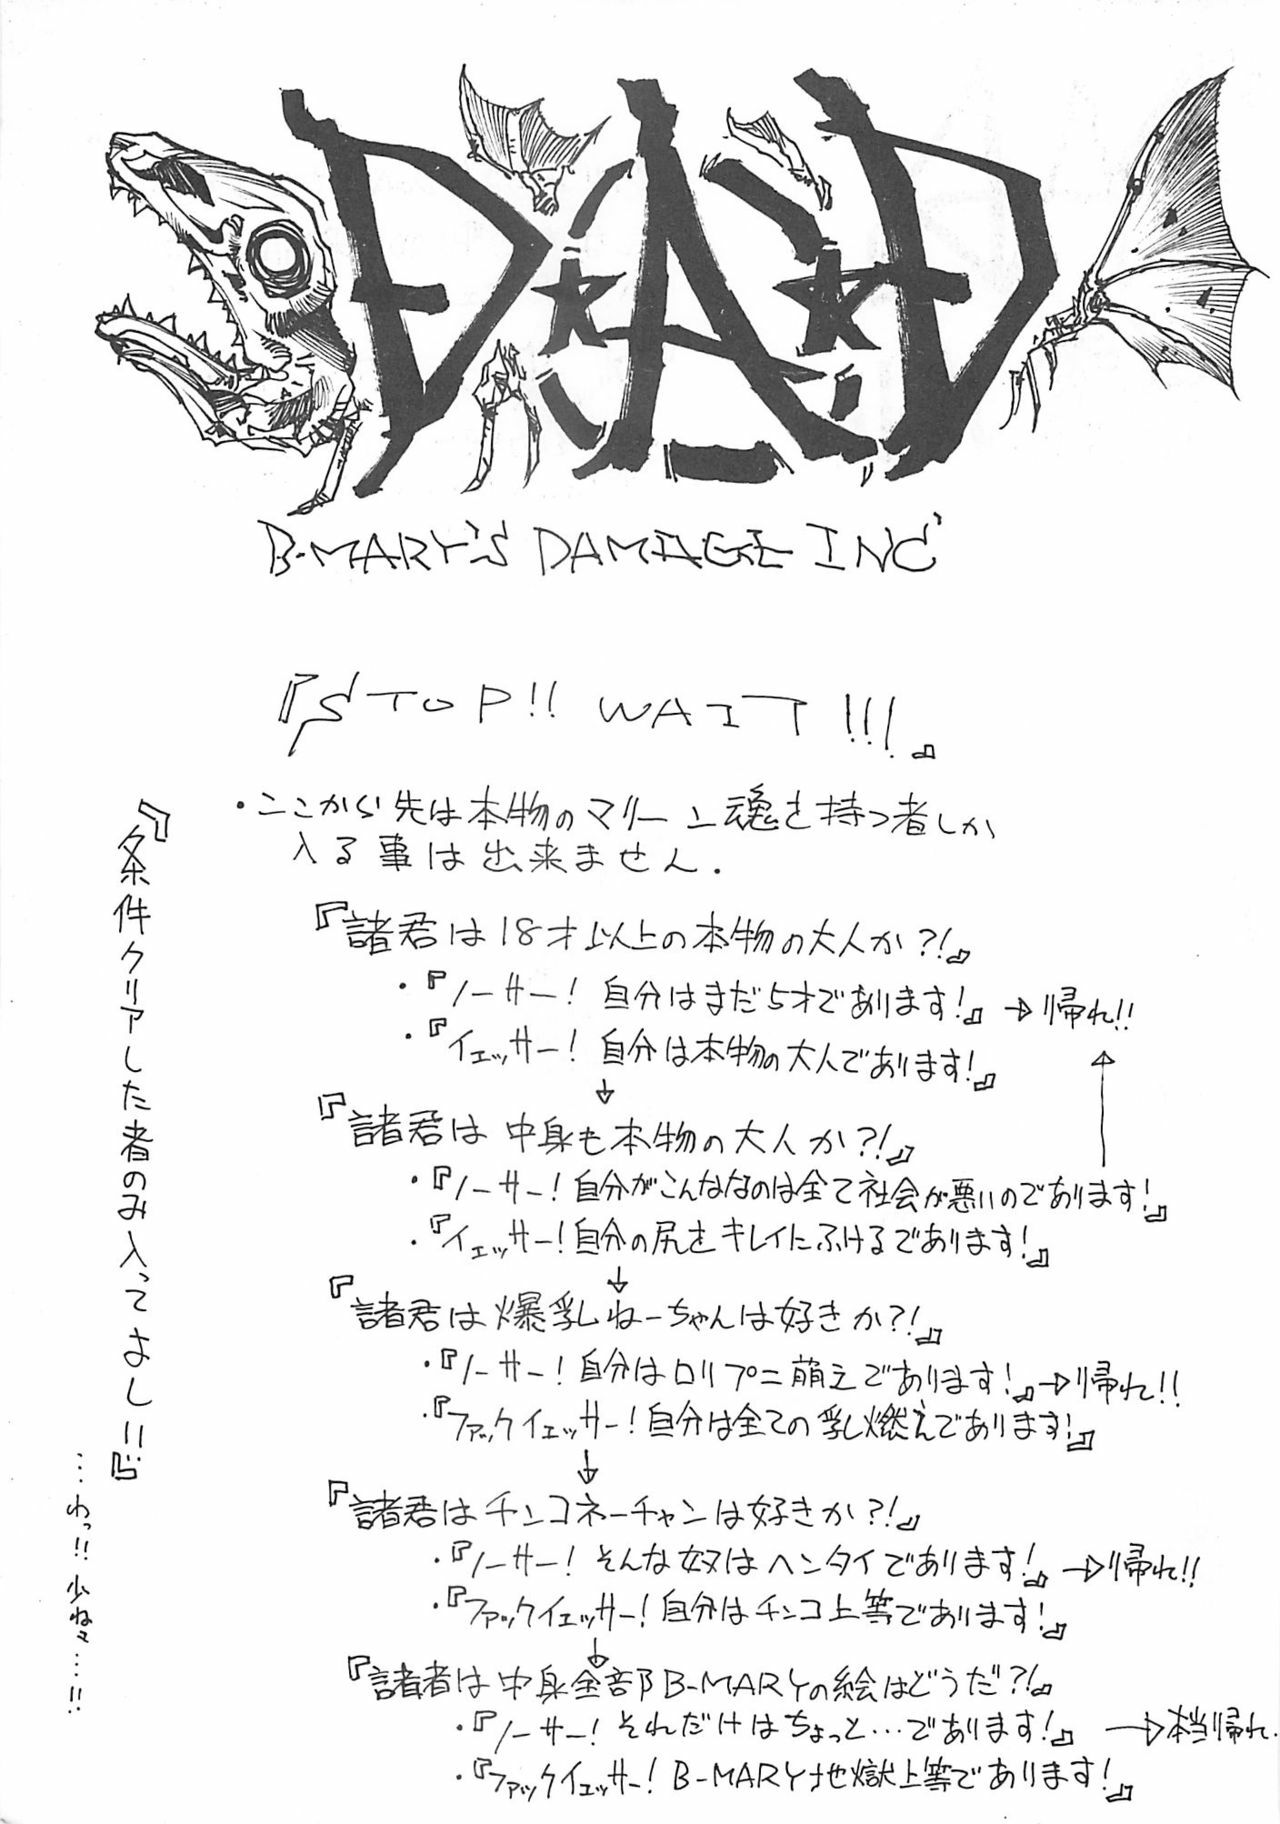 D★A★D
B-MARY'S DAMAGE INC
『STOP!! WAIT!!!』
・ここから先は本物のマリー上魂を持つ者しか
入る事は出来ません.
『諸君は18才以上の本物の大人か?!』
・『ノーサー! 自分はまだ5才であります!』→帰れ!!
・『イエッサー! 自分は本物の大人であります!』
↓
『諸君は中身も本物の大人か?!』
・『ノーサー! 自分がこんななのは全て社会が悪いのであります!』
・『イエッサー! 自分の尻をキレイにふけるであります!』
↓
『諸君は爆乳ねーちゃんは好きか?!』
・『ノーサー! 自分はロリプニ萌えであります!』→帰れ!!
・『ファックイエッサー! 自分は全ての乳燃えであります!』
↓
『諸君はチンコネーチャンは好きか?!』
・『ノーサー! そんな奴はヘンタイであります!』→帰れ!!
・『ファックイエッサー! 自分はチンコ上等であります!』
↓
『諸者は中身全部B-MARYの絵はどうだ?!』
・『ノーサー! それだけはちょっと…であります!』→本当帰れ.
・『ファックイエッサー! B-MARY地獄上等であります!』
『条件クリアした者のみ入ってよし!!』
…わっ!! 少ねぇ…!!